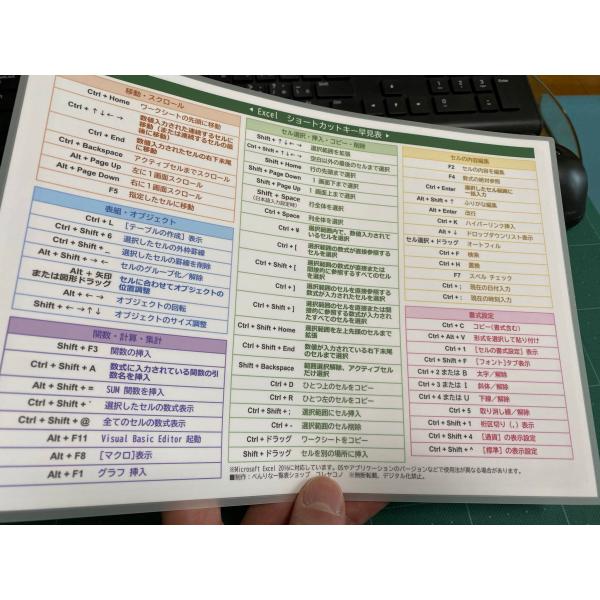 Excel ショートカットキー早見表
移動・スクロール
Ctrl + Home ワークシートの先頭に移動
Ctrl + ↑↓←→ 数値入力された連続するセルに
移動(または連続するセルの最
後に移動)
Ctrl + End 数値入力されたセルの右下末尾
に移動
Ctrl + Backspace アクティブセルまでスクロール
Alt + Page Up 左に1画面スクロール
Alt + Page Down 右に1画面スクロール
F5 指定したセルに移動
表組・オブジェクト
Ctrl + L [テーブルの作成] 表示
Ctrl + Shift + 6 選択したセルの外枠罫線
Ctrl + Shift + _ 選択したセルの罫線を削除
Alt + Shift + →← セルのグループ化/解除
Alt + 矢印 セルに合わせてオブジェクトの
または図形ドラッグ 位置調整
Alt + ←→ オブジェクトの回転
Shift + ←→↑↓ オブジェクトのサイズ調整
関数・計算・集計
Shift + F3 関数の挿入
Ctrl + Shift + A 数式に入力されている関数の引
数名を挿入
Alt + Shift + = SUM 関数を挿入
Ctrl + Shift + ` 選択したセルの数式表示
Ctrl + Shift + @ 全てのセルの数式表示
Alt + F11 Visual Basic Editor 起動
Alt + F8 [マクロ]表示
Alt + F1 グラフ 挿入
セル選択・挿入・コピー・削除
Shift + ↑↓←→ 選択範囲を拡張
Ctrl + Shift + ↑↓←→ 空白以外の最後のセルまで選択
Shift + Home 行の先頭まで選択
Shift + Page Down 1画面下まで選択
Shift + Page Up 1画面上まで選択
Shift + Space 行全体を選択
(日本語入力設定時)
Ctrl + Space 列全体を選択
Ctrl + ¥ 選択範囲内で、数値入力されて
いるセルを選択
Ctrl + [ 選択範囲の数式が直接参照する
セルを選択
Ctrl + Shift + [ 選択範囲の数式が直接または
間接的に参照するすべてのセル
を選択
Ctrl + ] 選択範囲のセルを直接参照する
数式が入力されたセルを選択
Ctrl + Shift + ] 選択範囲のセルを直接または間
接的に参照する数式が入力され
たすべてのセルを選択
Ctrl + Shift + Home 選択範囲を左上先頭のセルまで
拡張
Ctrl + Shift + End 数値が入力されている右下末尾
のセルまで選択
Shift + Backspace 範囲選択解除、アクティブセル
だけ選択
Ctrl + D ひとつ上のセルをコピー
Ctrl + R ひとつ左のセルをコピー
Ctrl + Shift + ; 選択範囲にセル挿入
Ctrl + - 選択範囲のセル削除
Ctrl + ドラッグ ワークシートをコピー
Shift + ドラッグ セルを別の場所に挿入
セルの内容編集
F2 セルの内容を編集
F4 数式の絶対参照
Ctrl + Enter 選択したセル範囲に
一括入力
Alt + Shift + ↑ ふりがな編集
Alt + Enter 改行
Ctrl + K ハイパーリンク挿入
Alt + ↓ ドロップダウンリスト表示
セル選択 + ドラッグ オートフィル
Ctrl + F 検索
Ctrl + H 置換
F7 スペル チェック
Ctrl + ; 現在の日付入力
Ctrl + : 現在の時刻入力
書式設定
Ctrl + C コピー(書式含む)
Ctrl + Alt + V 形式を選択して貼り付け
Ctrl + 1 [セルの書式設定] 表示
Ctrl + Shift + F [フォント]タブ表示
Ctrl + 2 または B 太字/解除
Ctrl + 3 または I 斜体/解除
Ctrl + 4 または U 下線/解除
Ctrl + 5 取り消し線/解除
Ctrl + Shift + 1 桁区切り(,)表示
Ctrl + Shift + 4 [通貨]の表示設定
Ctrl + Shift + ^ [標準]の表示設定
※Microsoft Excel 2016に対応しています。OSやアプリケーションのバージョンなどで使用法が異なる場合があります。
■制作:べんりな一覧表ショップ コレヤコノ ※無断転載、デジタル化禁止。